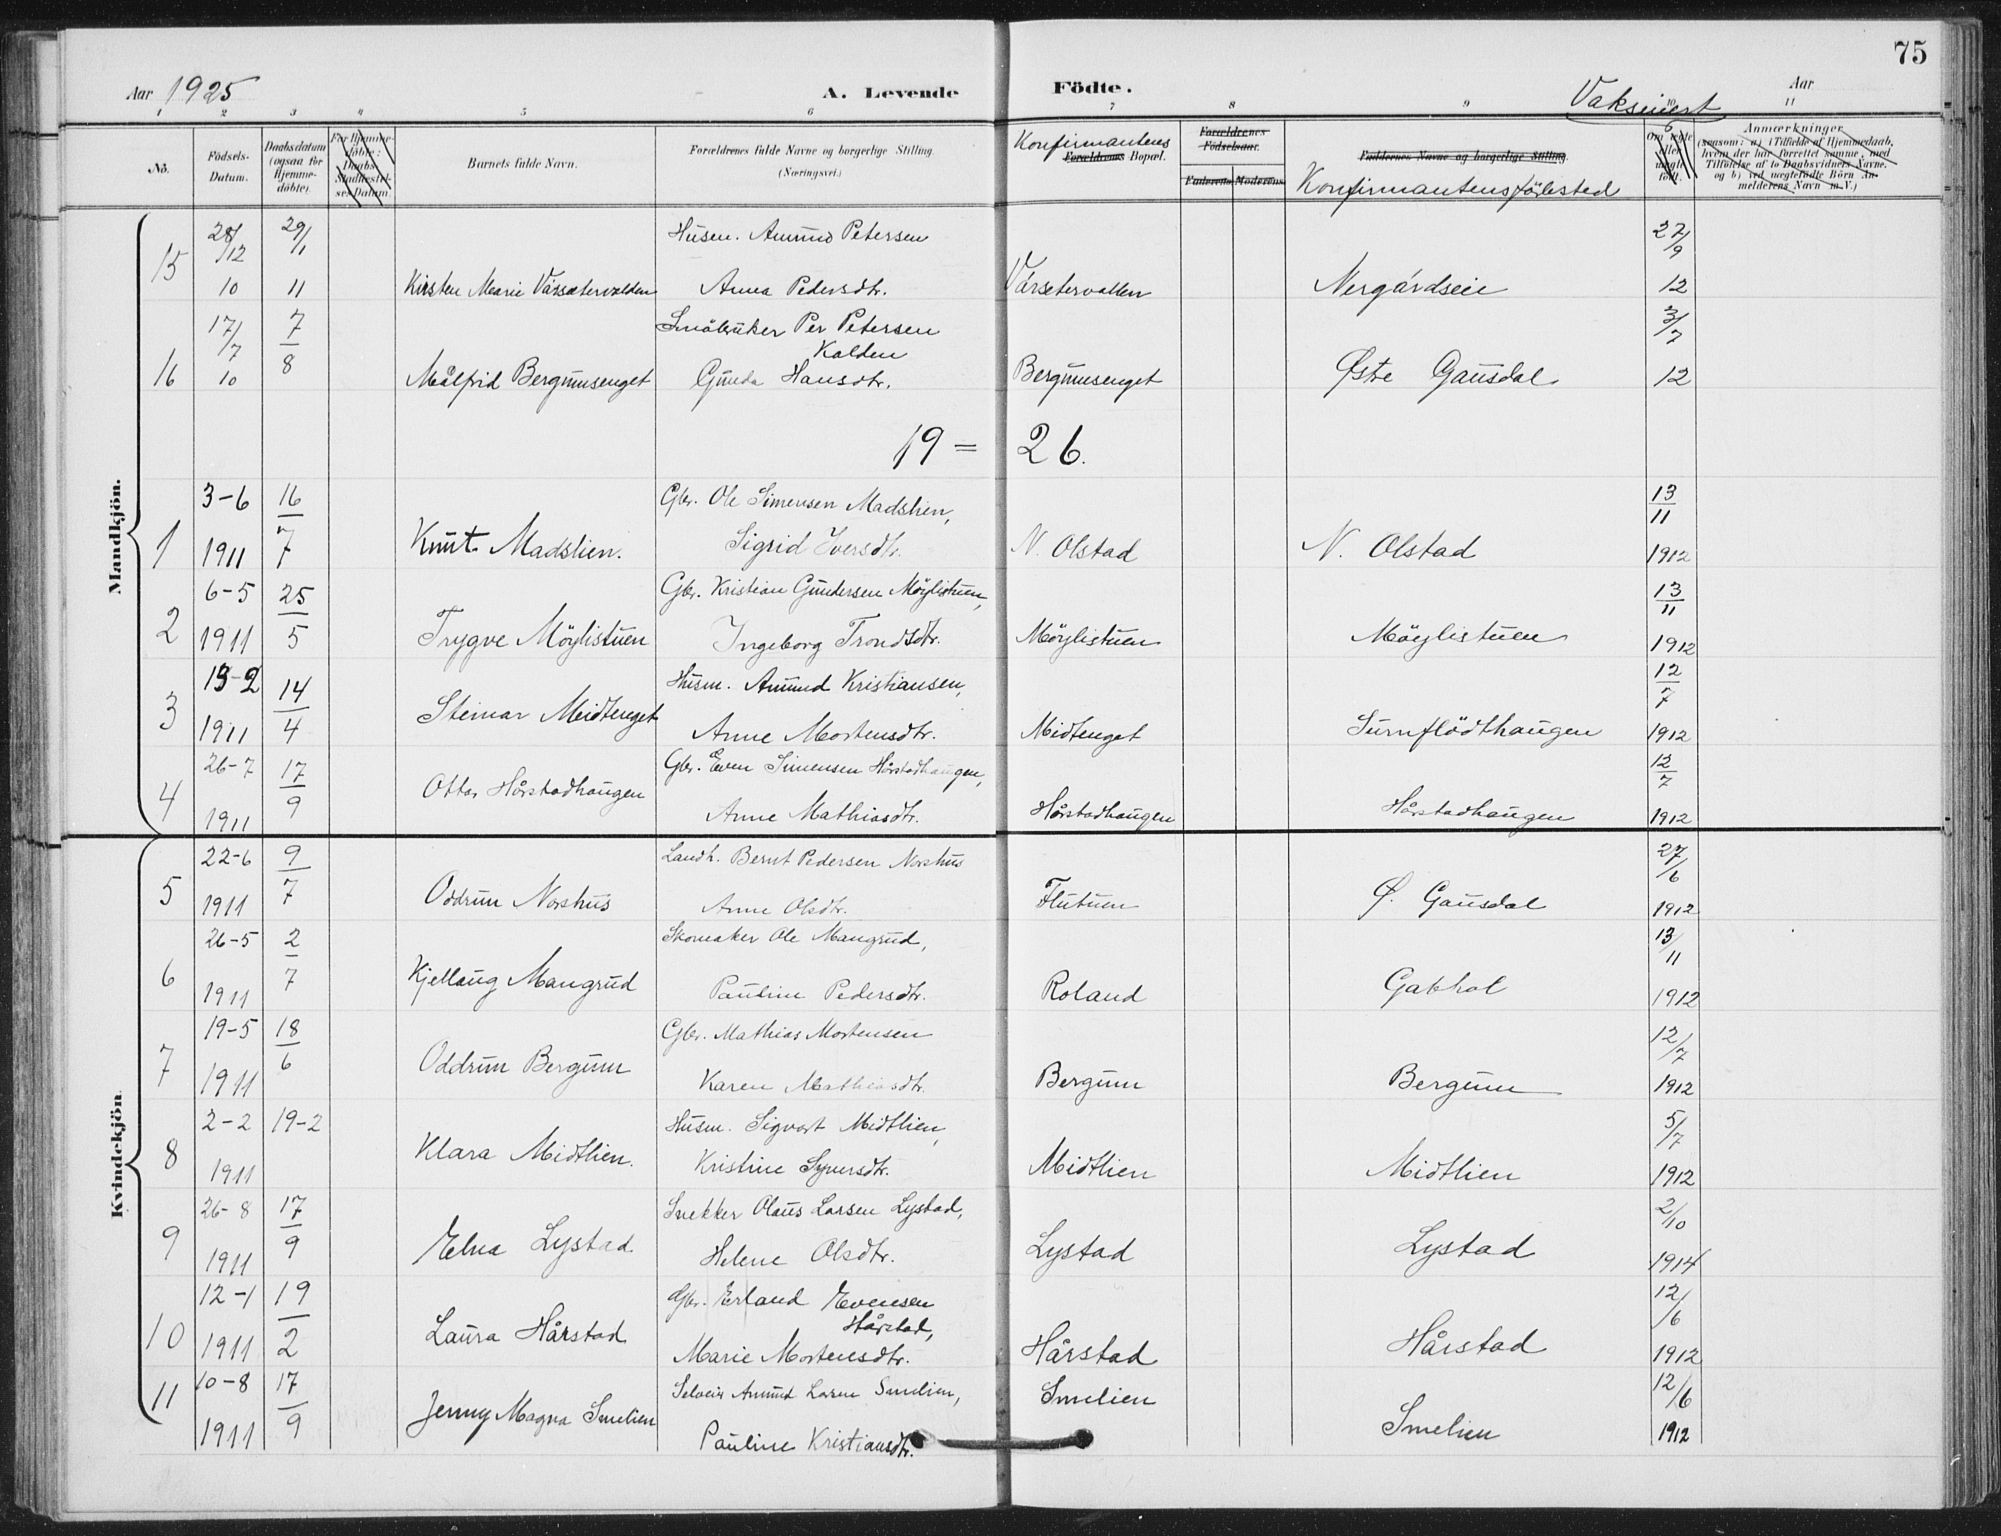 75
Aar 1925 A. Levende Födte. Vaksinert Aar
1 2 3 4 5 6 7 8 9 10 11
No. Födsels-Datum. Daabsdatum (ogsaa for Hjemme-döbte). For Hjemme-döbte: Daabs-Stadfestel-ses-Datum. Barnets fulde Navn. Forældrenes fulde Navne og borgerlige Stilling. (Næringsvei.) Konfirmantens Forældrenes Bopæl. Forældrenes Födselsaar. Faderens Moderens Faddernes Navne og borgerlige Stilling. Konfirmantens fødested Om ægte eller uægte født. Anmærkninger (saasom: a) i Tilfælde af Hjemmedaab, hvem der har forrettet samme, med Tilföielse af to Daabsvidners Navne, og b) ved uægtefödte Börn An-melderens Navn m. V.)
28/12 29/1 Husm. Amund Petersen 27/9
15 10 11 Kirsten Marie Vårsætervolden Anna Pedersdtr. Vårsetervollen Nergårdseie 12
17/7 7 Småbruker Per Petersen 3/7
Kolden
16 10 8 Målfrid Bergumsenget Gunda Hansdtr. Bergumsenget Østre Gausdal 12
19 = 26.
Mandkjön.
3-6 16 Gbr. Ole Simensen Madslien, 13/11
1 1911 7 Knut Madslien. Sigrid Iversdtr. N. Olstad N. Olstad 1912
6-5 25 Gbr. Kristian Gundersen Möylistuen, 13/11
2 1911 5 Trygve Möylistuen Ingeborg Trondsdtr. Möylistuen Möylistuen 1912
13-2 14 Husm. Amund Kristiansen, 12/7
3 1911 4 Steinar Meidtenget Anne Mortensdtr. Midtenget Surnflödthaugen 1912
26-7 17 Gbr. Even Simensen Hårstadhaugen, 12/7
4 1911 9 Ottar Hårstadhaugen Anne Mathiasdtr. Hårstadhaugen Hårstadhaugen 1912
Kvindekjön.
22-6 9 Landh. Bernt Pedersen Norshus 27/6
5 1911 7 Oddrun Norshus Anne Olsdtr. Flutuen Ø. Gausdal 1912
26-5 2 Skomaker Ole Mangrud, 13/11
6 1911 7 Kjellaug Mangrud Pauline Pedersdtr. Roland Gabhol 1912
19-5 18 Gbr. Mathias Mortensen 12/7
7 1911 6 Oddrun Bergum Karen Mathiasdtr. Bergum Bergum 1912
2-2 19-2 Husm. Sigvart Midtlien, 5/7
8 1911 Klara Midtlien. Kristine Syversdtr. Midtlien Midtlien 1912
26-8 17 Snekker Olaus Larsen Lystad, 2/10
9 1911 9 Elna Lystad Helene Olsdtr. Lystad Lystad 1914
12-1 19 Gbr. Erland Evensen 12/6
Hårstad,
10 1911 2 Laura Hårstad Marie Mortensdtr. Hårstad Hårstad 1912
10-8 17 Selveier Amund Larsen Smelien, Smelien 12/6
11 1911 9 Jenny Magna Smelien Pauline Kristiansdtr. Smelien 1912